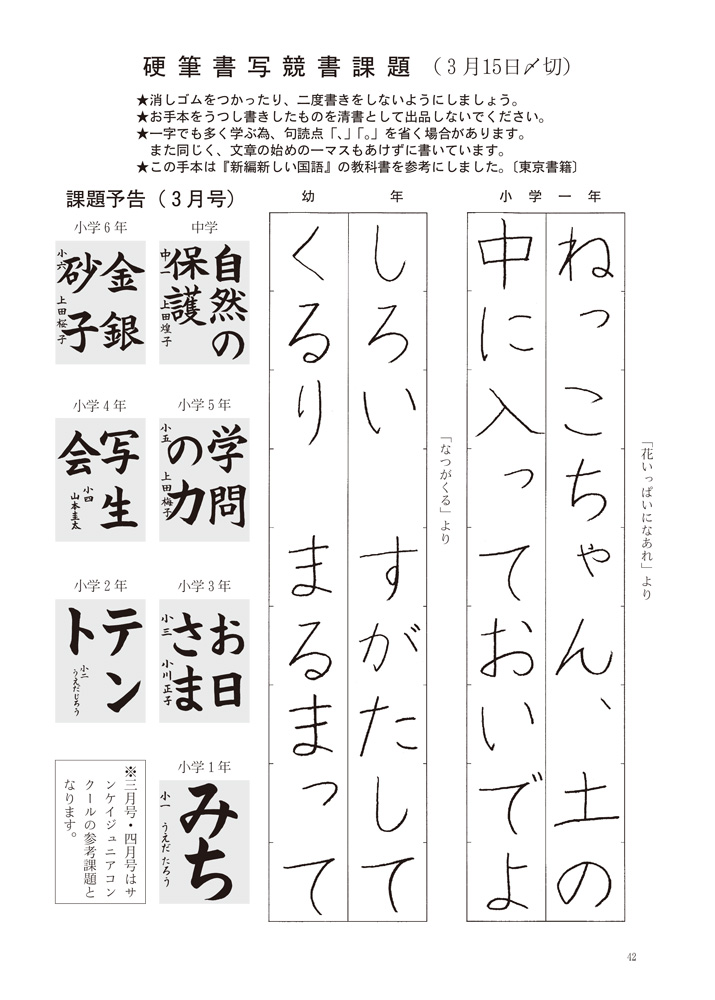 硬筆書写競書課題（３月15日〆切）
★消しゴムをつかったり、二度書きをしないようにしましょう。
★お手本をうつし書きしたものを清書として出品しないでください。
★一字でも多く学ぶ為、句読点「、」「。」を省く場合があります。
また同じく、文章の始めの一マスもあけずに書いています。
★この手本は『新編新しい国語』の教科書を参考にしました。〔東京書籍〕
小学一年
「花いっぱいになあれ」より
ねっこちゃん、土の
中に入っておいでよ
幼年
「なつがくる」より
しろい　すがたして
くるり　まるまって
課題予告（３月号）
中学
自然の
保護
中一　上田煌子
小学６年
金銀
砂子
小六　上田桜子
小学５年
学問
の力
小五　上田梅子
小学４年
写生
会
小四　山本圭太
小学３年
お日
さま
小三　小川正子
小学２年
テン
ト
小二　うえだじろう
小学１年
みち
小一　うえだたろう
※三月号・四月号はサ
ンケイジュニアコン
クールの参考課題と
なります。
42